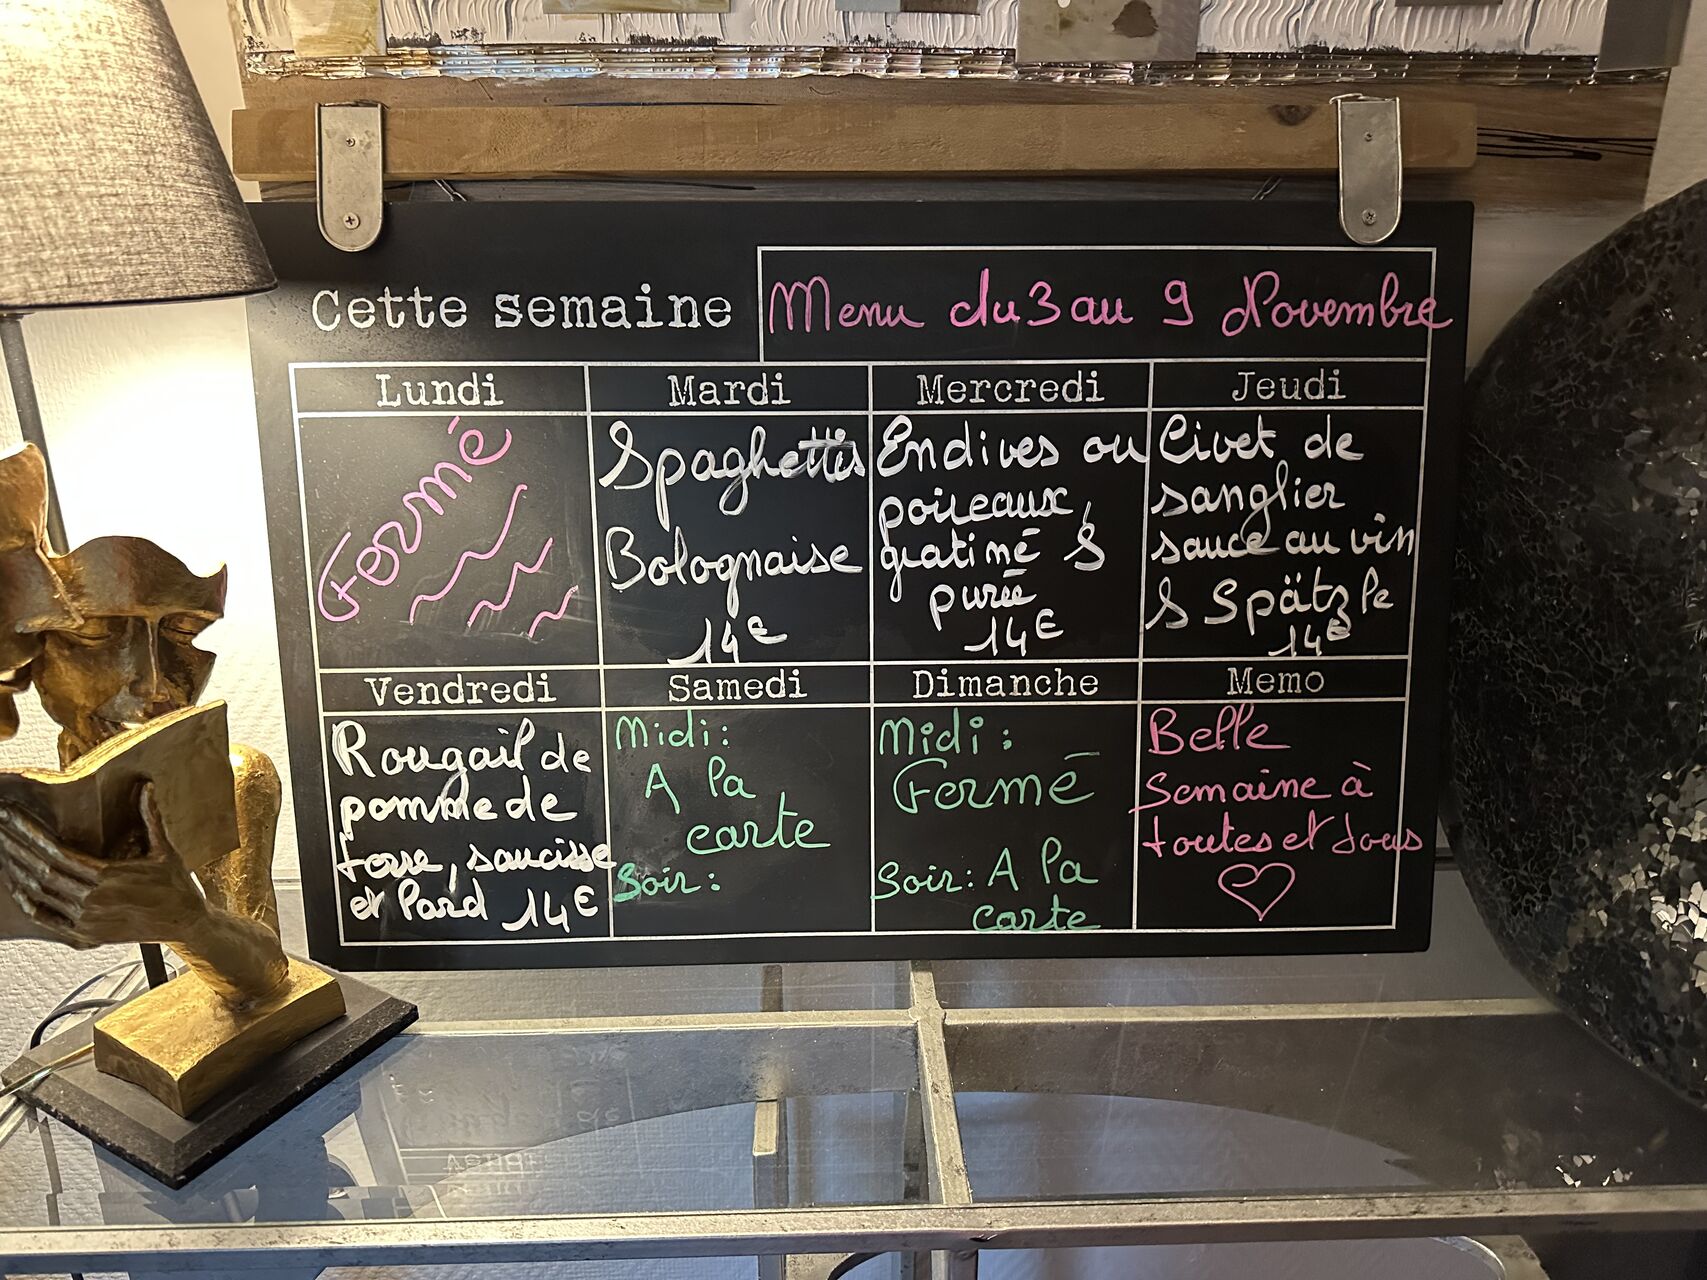 Cette semaine
Menu du 3 au 9 Novembre
Lundi
Fermé
Mardi
Spaghettis
Bolognaise
14€
Mercredi
Endives ou
poireaux,
gratiné &
purée
14€
Jeudi
Civet de
sanglier
sauce au vin
& Spätzle
14€
Vendredi
Rougail de
pomme de
terre, saucisse
et lard 14€
Samedi
Midi:
A la
carte
Soir:
Dimanche
Midi:
Fermé
Soir: A la
carte
Memo
Belle
Semaine à
toutes et tous